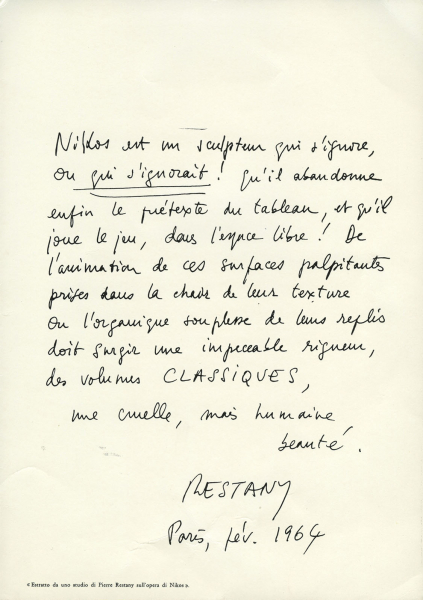 Nikos est un sculpteur qui s'ignore,
ou qui s'ignorait ! Qu'il abandonne
enfin le prétexte du tableau, et qu'il
joue le jeu, dans l'espace libre ! De
l'animation de ces surfaces palpitantes
prises dans la chair de leur texture
ou l'organique souplesse de leurs replis
doit surgir une impeccable rigueur,
des volumes CLASSIQUES,
une cruelle, mais humaine
beauté.
RESTANY
Paris, fév. 1964
« Estratto da uno studio di Pierre Restany sull'opera di Nikos ».